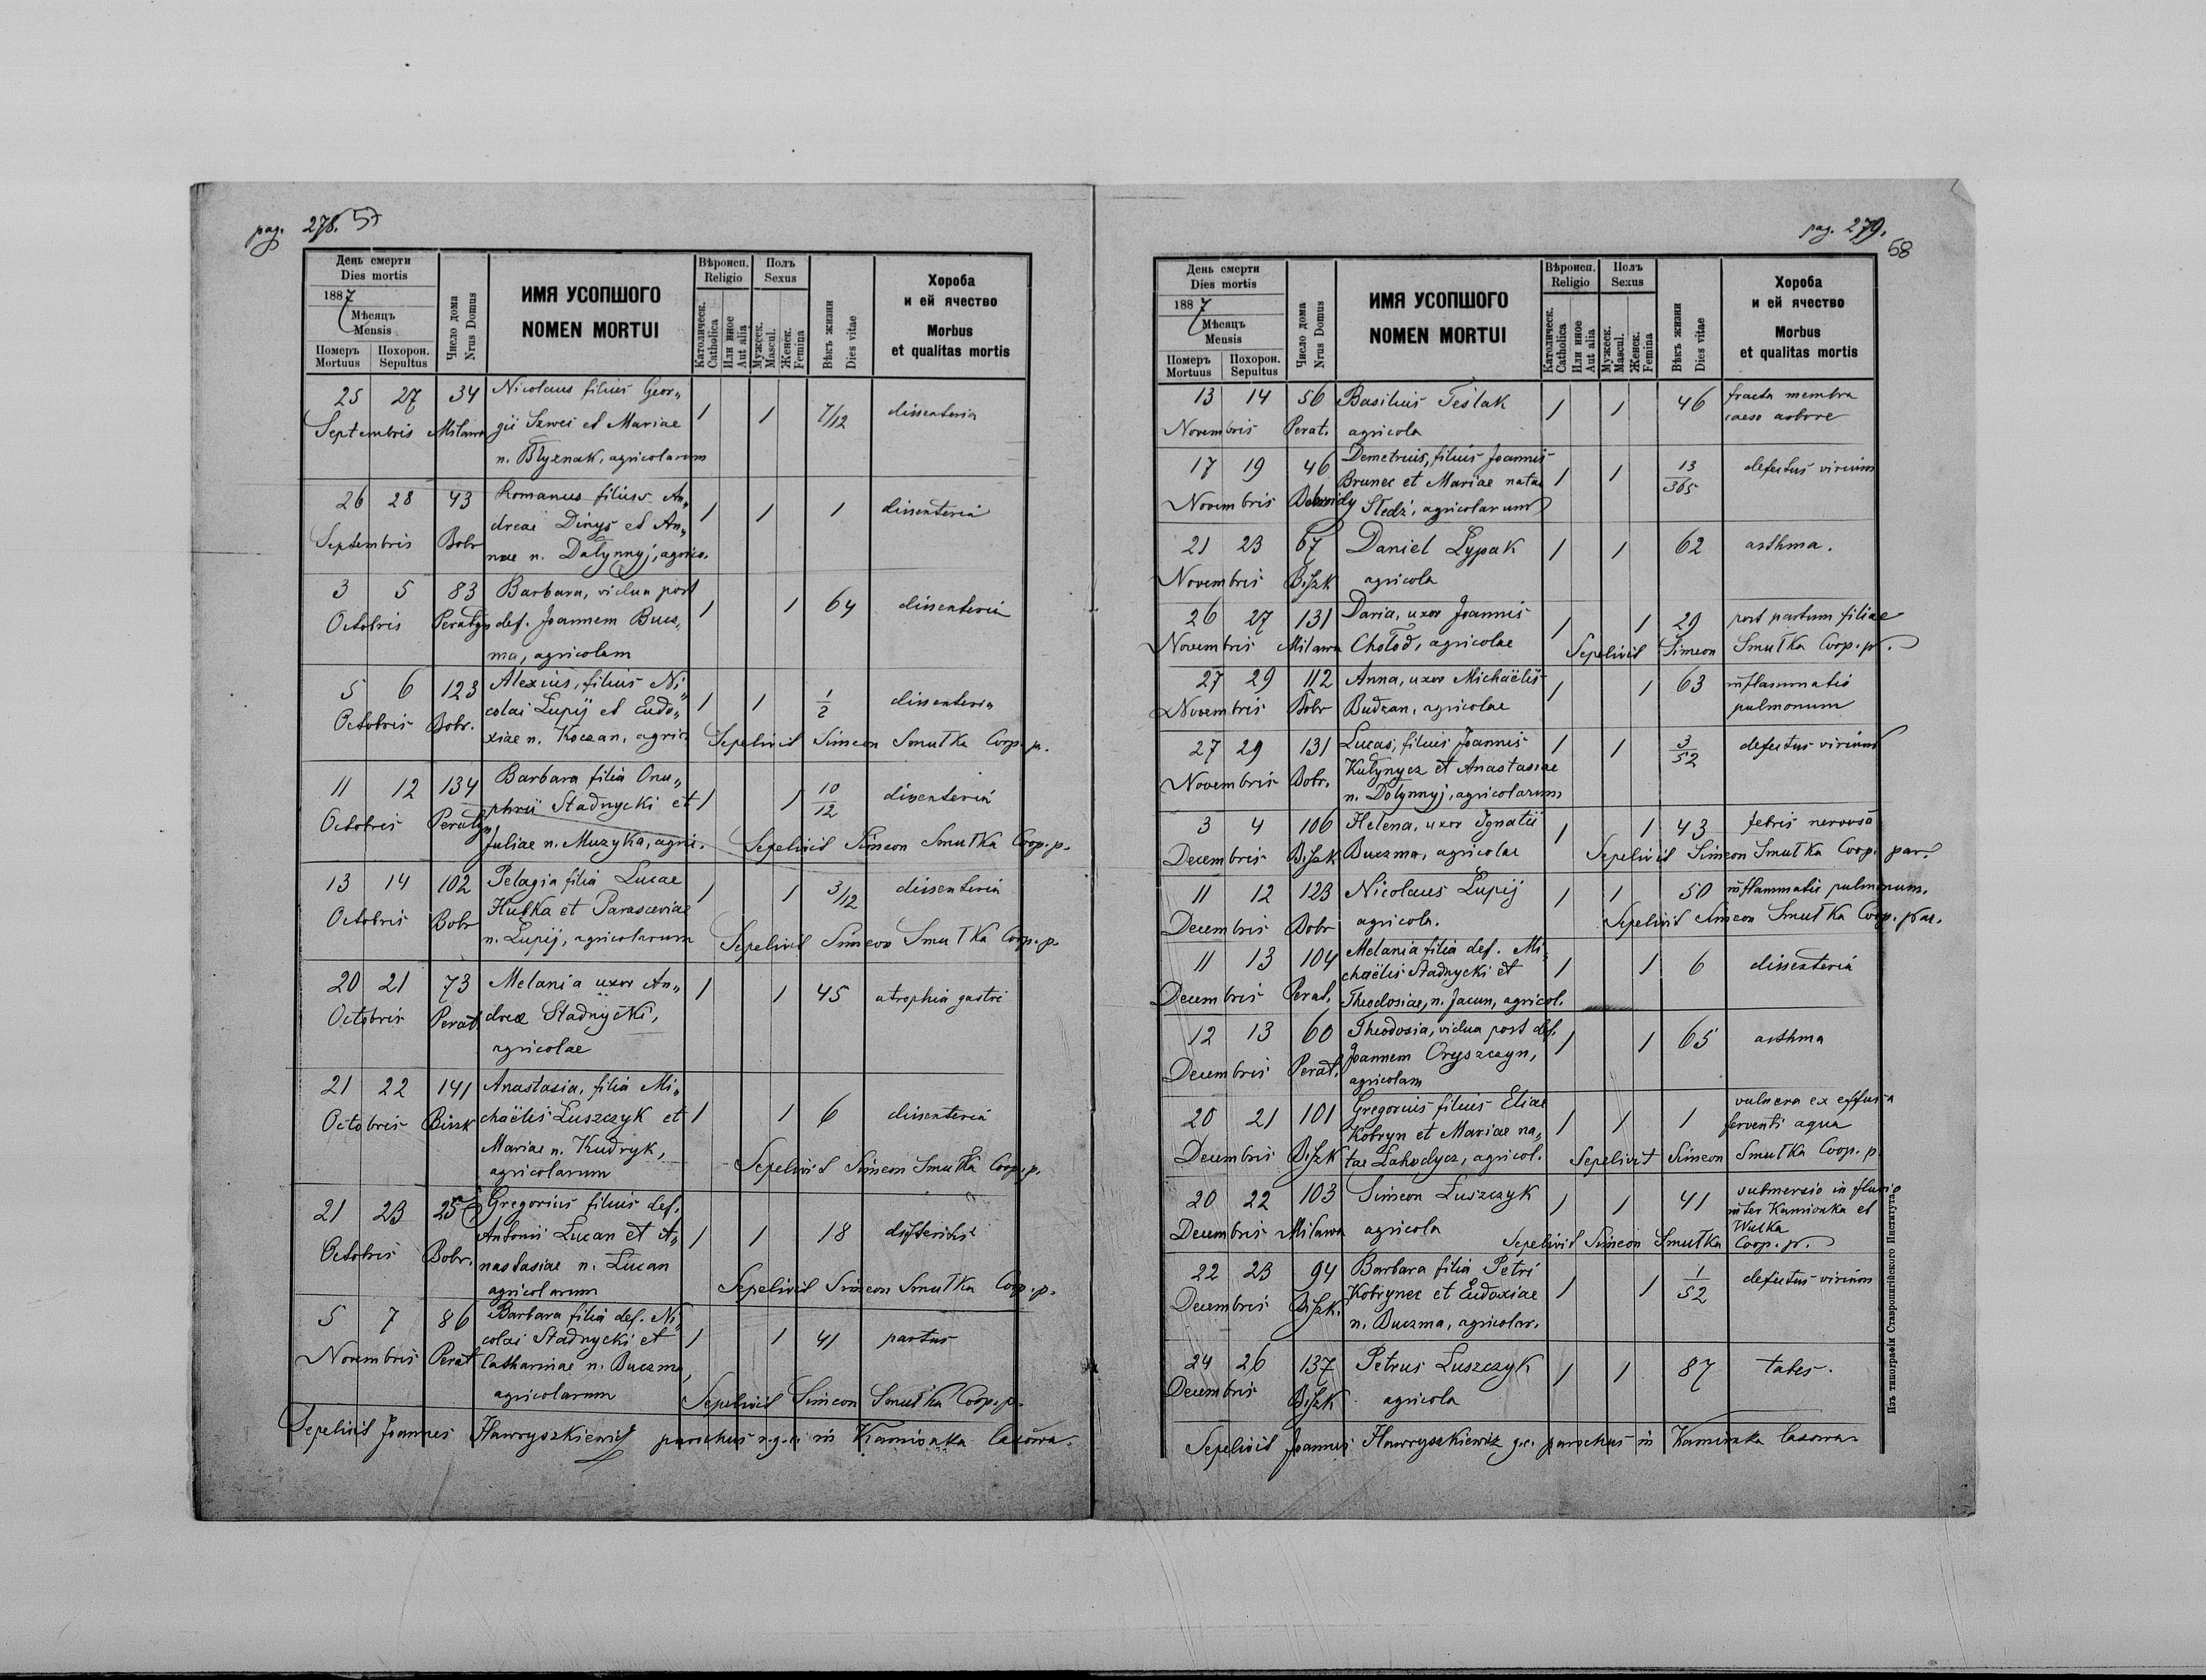 pag. 278. 57
День смерти
Dies mortis
1887
Мѣсяцъ
Mensis
Померъ Mortuus
Похорон. Sepultus
Число дома
Nrus Domus
ИМЯ УСОПШОГО
NOMEN MORTUI
Вѣроисп.
Religio
Католическ.
Catholica
Или иное
Aut alia
Полъ
Sexus
Мужеск.
Mascul.
Женск.
Femina
Вѣкъ жизни
Dies vitae
Хороба
и ей ячество
Morbus
et qualitas mortis
25 27 34 Nicolaus filius Geor„
Septembris Milawa gii Szwec et Mariae 1 1 7/12 dissenteria
n. Błyznak, agricolarum
26 28 43 Romanus filius An„
dreae Dinys et An„ 1 1 1 dissenteria
Septembris Bobr nae n. Dołynnyj, agrico.
3 5 83 Barbara, vidua post
Octobris Peratyn def. Joannem Bucz„ 1 1 64 dissenteria
ma, agricolam
5 6 123 Alexius, filius Ni„
Octobris Bobr. colai Łupij et Eudo„ 1 1 1/2 dissenteria
xiae n. Koczan, agric. Sepelivit Simeon Smułka Coop. p.
11 12 134 Barbara filia Onu„
Octobris Peratyn phrii Stadnycki et 1 1 10/12 dissenteria
Juliae n. Muzyka, agric. Sepelivit Simeon Smułka Coop. p.
13 14 102 Pelagia filia Lucae
Octobris Bobr Hułka et Parasceviae 1 1 3/12 dissenteria
n. Łupij, agricolarum Sepelivit Simeon Smułka Coop. p.
20 21 73 Melania uxor An„ 1 1 45 atrophia gastri
Octobris Perat dreae Stadnycki,
agricolae
21 22 141 Anastasia, filia Mi„
Octobris Biszk chaëlis Łuszczyk et 1 1 6 dissenteria
Mariae n. Kudryk,
agricolarum Sepelivit Simeon Smułka Coop. p.
21 23 25 Gregorius filius def.
Octobris Bobr. Antonii Lucan et A„ 1 1 18 difteritis
nastasiae n. Lucan
agricolarum Sepelivit Simeon Smułka Coop. p.
5 7 86 Barbara filia def. Ni„
Novembris Perat colai Stadnycki et 1 1 41 partus
Catharinae n. Buczma,
agricolarum Sepelivit Simeon Smułka Coop. p.
Sepelivit Joannes Hawryszkiewicz parochus r.g.c. in Kamionka lasowa.
pag. 279.
58
День смерти
Dies mortis
1887
Мѣсяцъ
Mensis
Померъ Mortuus
Похорон. Sepultus
Число дома
Nrus Domus
ИМЯ УСОПШОГО
NOMEN MORTUI
Вѣроисп.
Religio
Католическ.
Catholica
Или иное
Aut alia
Полъ
Sexus
Мужеск.
Mascul.
Женск.
Femina
Вѣкъ жизни
Dies vitae
Хороба
и ей ячество
Morbus
et qualitas mortis
13 14 56 Basilius Teslak 1 1 46 fracta membra
Novembris Perat. agricola caeso arbore
17 19 46 Demetrius, filius Joannis
Brunec et Mariae natae 1 1 13/365 defectus virium
Novembris Śledź, agricolarum
21 23 67 Daniel Łypak 1 1 62 asthma.
Novembris Biszk agricola
26 27 131 Daria, uxor Joannis 1 1 29 post partum filiae
Novembris Milawa Chołod, agricolae Sepelivit Simeon Smułka Coop. p.
27 29 112 Anna, uxor Michaëlis 1 1 63 inflammatio
Novembris Bobr Budzan, agricolae pulmonum
27 29 131 Lucas, filius Joannis 1 1 3/52 defectus virium
Novembris Bobr. Kułynycz et Anastasiae
n. Dołynnyj, agricolarum
3 4 106 Helena, uxor Ignatii 1 1 43 febris nervosa
Decembris Biszk Buczma, agricolae Sepelivit Simeon Smułka Coop. par.
11 12 123 Nicolaus Łupij 1 1 50 inflammatio pulmonum.
Decembris Bobr agricola. Sepelivit Simeon Smułka Coop. par.
11 13 104 Melania filia def. Mi„
chaëlis Stadnycki et 1 1 6 dissenteria
Decembris Perat. Theodosiae, n. Jacun, agricol.
12 13 60 Theodosia, vidua post def.
Joannem Oryszczyn, 1 1 65 asthma
Decembris Perat. agricolam
20 21 101 Gregorius filius Eliae vulnera ex effusa
Kobryn et Mariae na„ 1 1 1 ferventi aqua
Decembris Biszk tae Łahodycz, agricol. Sepelivit Simeon Smułka Coop. p.
20 22 103 Simeon Łuszczyk 1 1 41 submersio in fluvio
inter Kamionka et
Decembris Milawa agricola Wulka
Sepelivit Simeon Smułka Coop. p.
22 23 94 Barbara filia Petri
Decembris Biszk. Kobrynec et Eudoxiae 1 1 1/52 defectus virium
n. Buczma, agricolar.
24 26 137 Petrus Łuszczyk 1 1 87 tabes.
Decembris Biszk agricola
Sepelivit Joannes Hawryszkiewicz g.c. parochus in Kamionka lasowa.
Изъ типографіи Ставропигійского Института